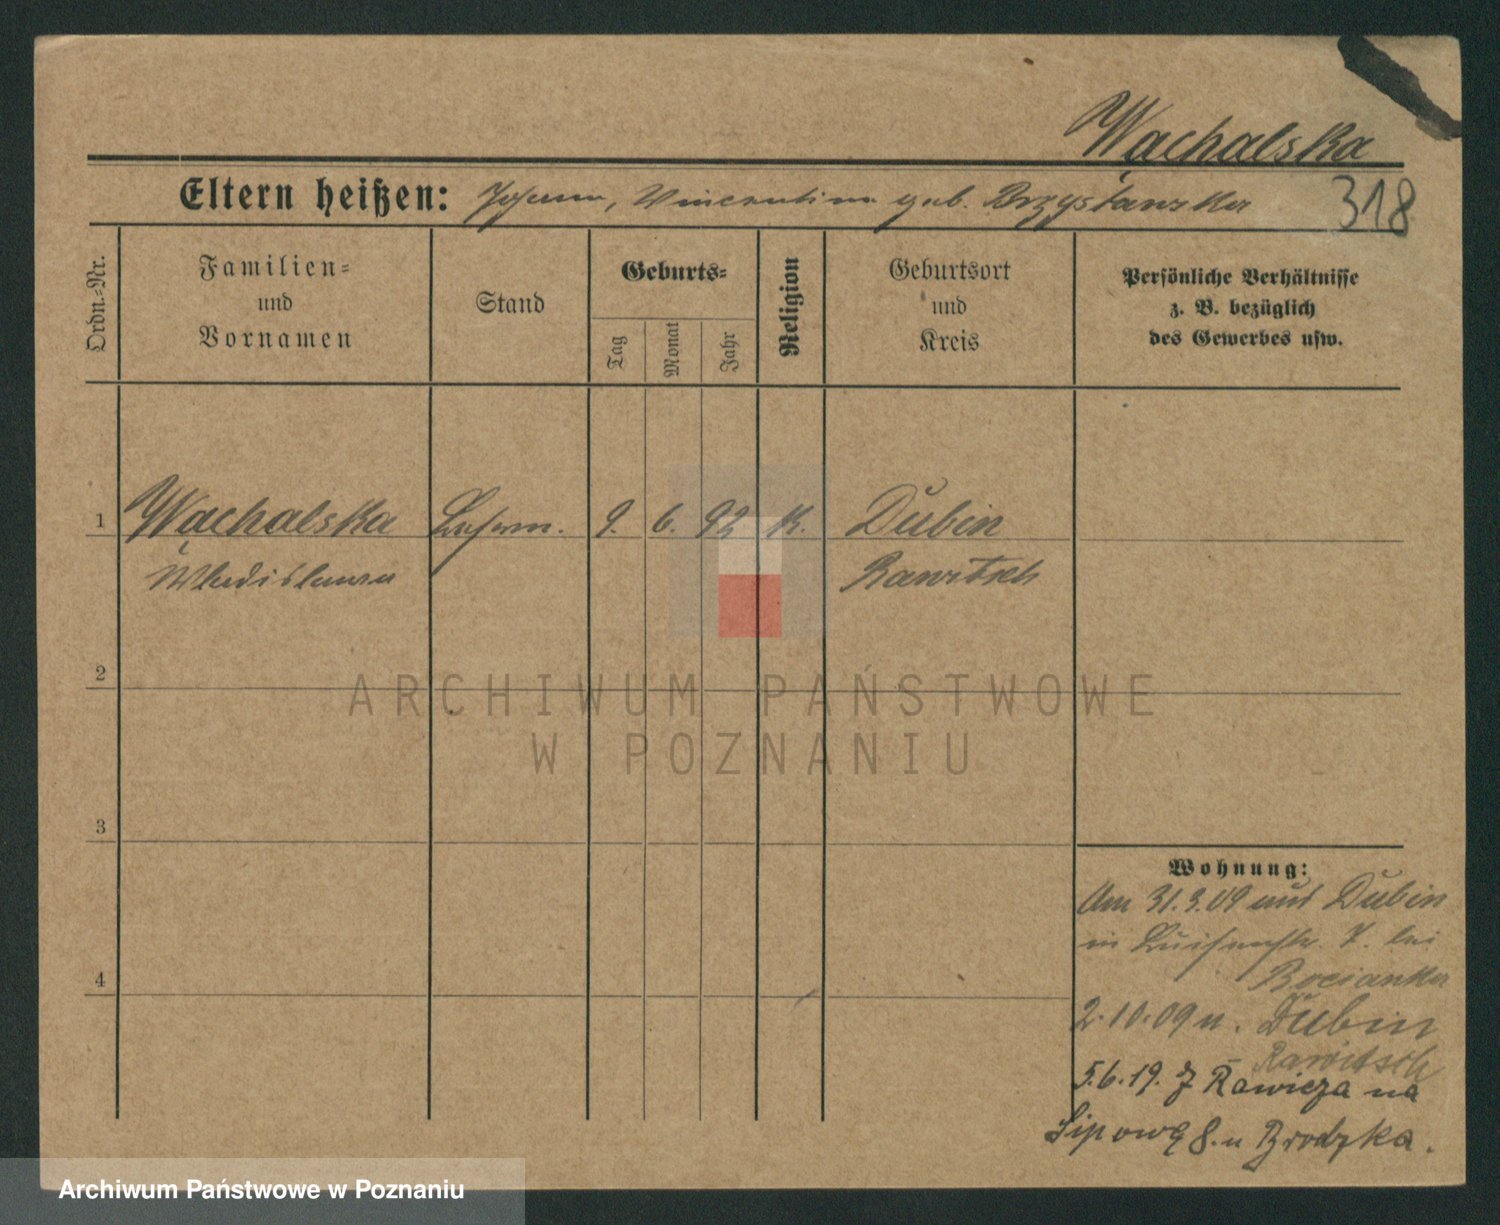 Wachalska
Eltern heißen: Johann, Vincentina geb. Brzystanska
318
Ordn.-Nr.
Familien-
und
Vornamen
Stand
Geburts-
Tag
Monat
Jahr
Religion
Geburtsort
und
Kreis
Persönliche Verhältnisse
z. B. bezüglich
des Gewerbes usw.
1 Wachalska 9. 6. 92 K. Dubin
Wladislawa Rawitsch
2
ARCHIWUM PAŃSTWOWE
W POZNANIU
3
Wohnung:
Am 31.3.09 aus Dubin
in Luisenstr. 7. bei
Bocianska
4
2.10.09 n. Dubin
Rawitsch
5.6.19. z Rawicza na
Lipową 8. u Brodzka.
Archiwum Państwowe w Poznaniu